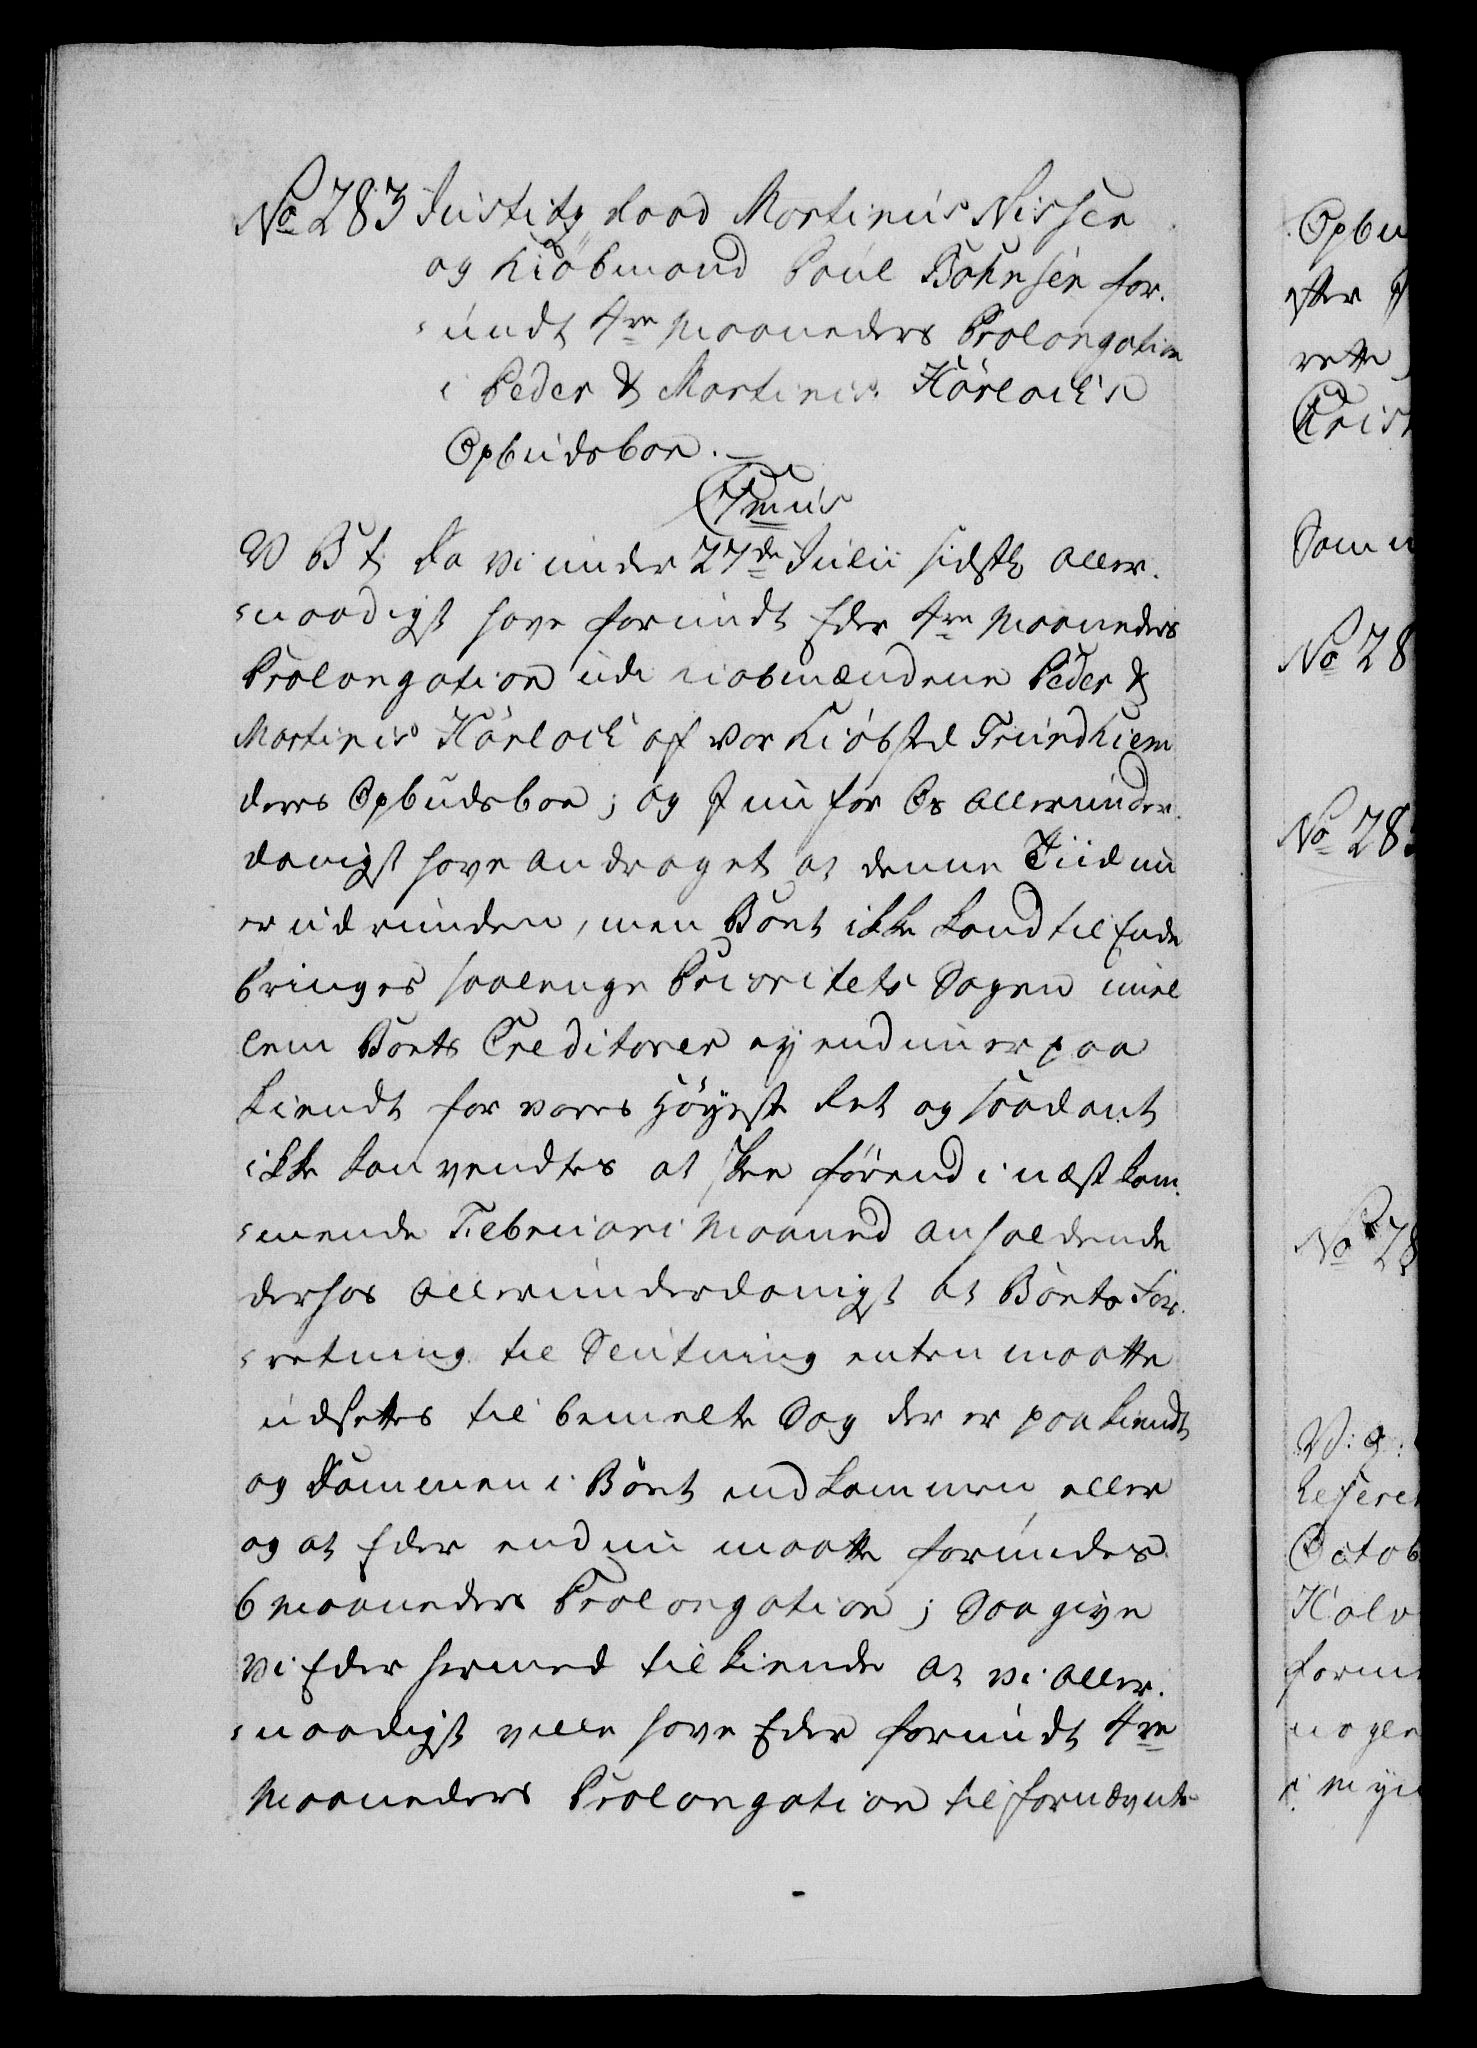 No 283 Justitz Raad Martinus Nissen
og Kiöbmand Paul Bohnsen for-
-undt 4re Maaneders Prolongation
i Peder & Martinus Hörlöck's
Opbudsboe.
C 7mus
V B t; Da vi under 27de Julii sidstl aller-
-naadigst have forundt Eder 4re Maaneders
Prolongation udi Kiøbmændene Peder &
Martinus Hörlock af vor Kiöbsted Trundhiem
deres Opbudsboe; og I nu for Os allerunder-
danigst have andraget at denne Tiid nu
er udrunden, men Boet ikke kand til Ende
bringes saalenge Prioritets Sagen imel
lem Boets Creditorer ey endnu er paa
kiendt for vores Høyeste Ret og saadant
ikke kan ventes at skee förend i næstkom-
-mende Februari Maaned anholdende
derhos allerunderdanigst at Boets For-
-retning til Slutning enten maatte
udsettes til bemelte Sag der er paakiendt
og Dommen i Boet indkommen eller
og at Eder endnu maatte forundes
6 Maaneders Prolongation; Saa give
vi Eder hermed tilkiende at vi aller-
-naadigst ville have Eder forundt 4re
Maaneders Prolongation til fornævnte
Opbu
efter
rette
Som
No 28
No 28
No 28
V: g:
Octob